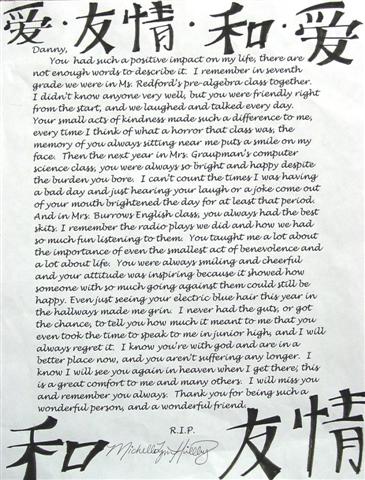 爱·友情·和·爱
Danny,
You had such a positive impact on my life, there are
not enough words to describe it. I remember in seventh
grade we were in Ms. Redford's pre-algebra class together.
I didn't know anyone very well, but you were friendly right
from the start, and we laughed and talked every day.
Your small acts of kindness made such a difference to me,
every time I think of what a horror that class was, the
memory of you always sitting near me puts a smile on my
face. Then the next year in Mrs. Graupman's computer
science class, you were always so bright and happy despite
the burden you bore. I can't count the times I was having
a bad day and just hearing your laugh or a joke come out
of your mouth brightened the day for at least that period.
And in Mrs. Burrows English class, you always had the best
skits. I remember the radio plays we did and how we had
so much fun listening to them. You taught me a lot about
the importance of even the smallest act of benevolence and
a lot about life. You were always smiling and cheerful
and your attitude was inspiring because it showed how
someone with so much going against them could still be
happy. Even just seeing your electric blue hair this year in
the hallways made me grin. I never had the guts, or got
the chance, to tell you how much it meant to me that you
even took the time to speak to me in junior high, and I will
always regret it. I know you're with god and are in a
better place now, and you aren't suffering any longer. I
know I will see you again in heaven when I get there; this
is a great comfort to me and many others. I will miss you
and remember you always. Thank you for being such a
wonderful person, and a wonderful friend.
R.I.P.
和 友情